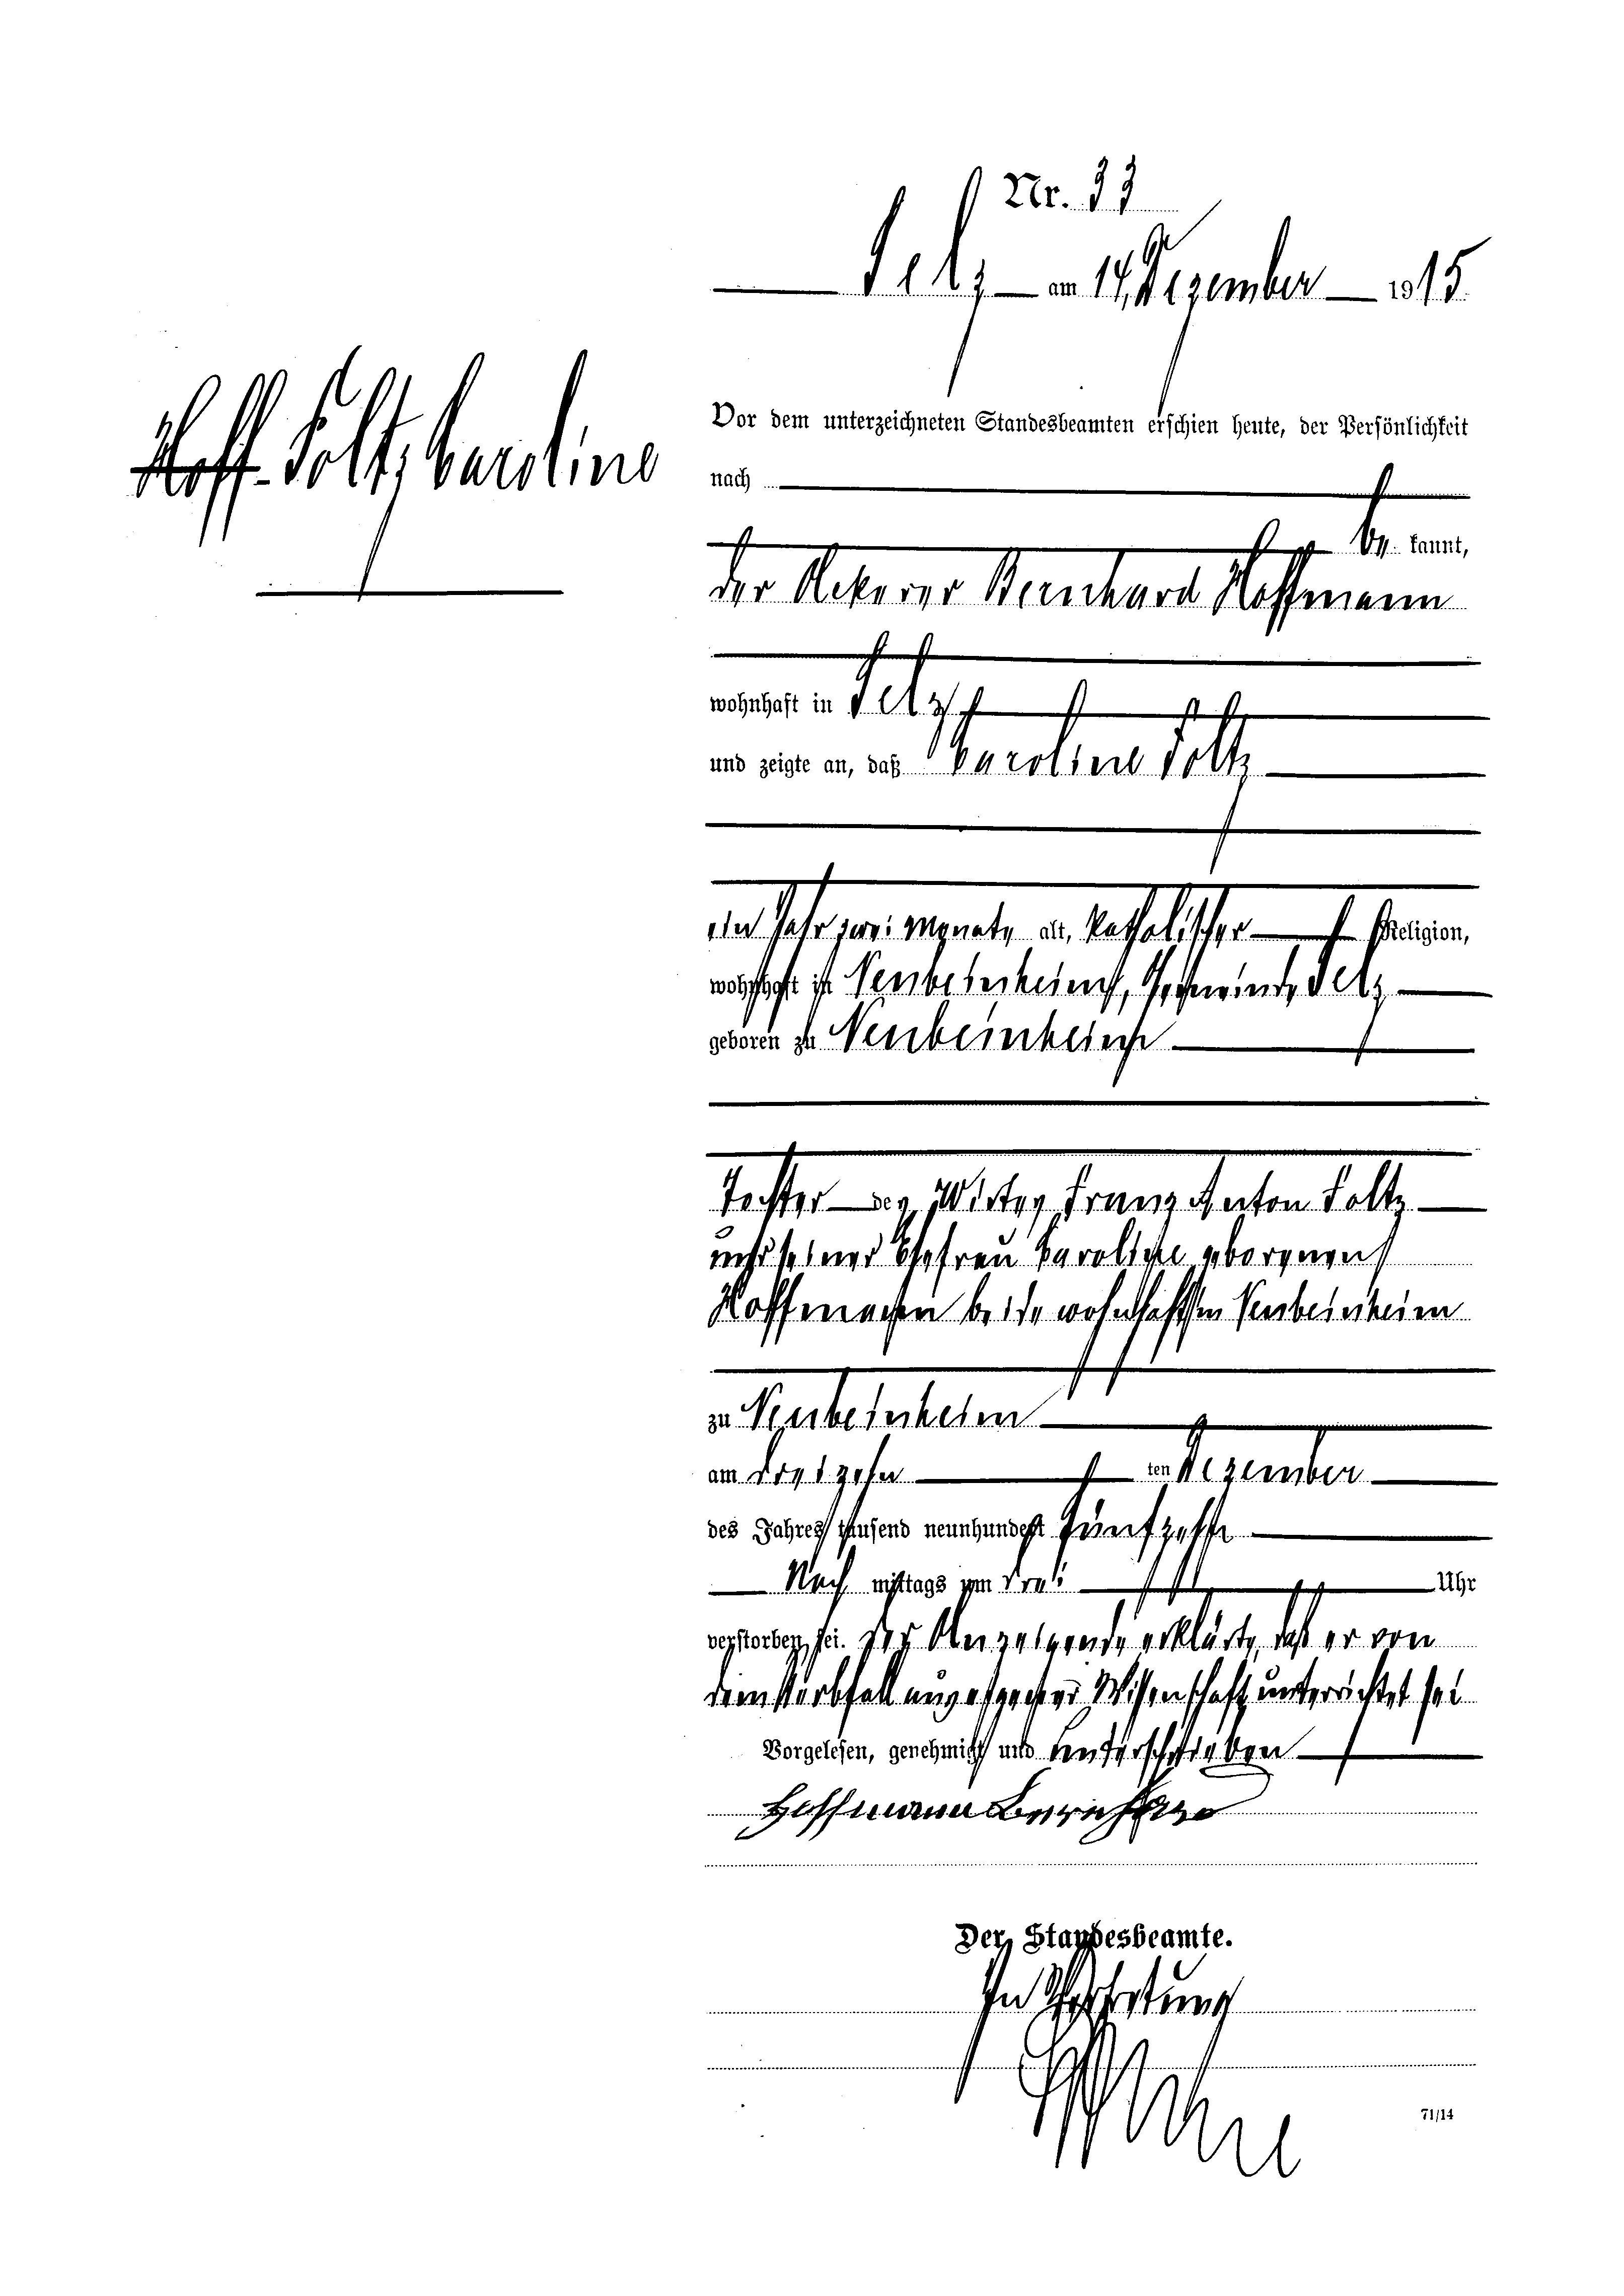 Nr. 33
Selz am 14. Dezember 1915
Hoff Foltz Caroline
Vor dem unterzeichneten Standesbeamten erschien heute, der Persönlichkeit
nach
be kannt,
der Ackerer Bernhard Hoffmann
wohnhaft in Selz
und zeigte an, daß Caroline Foltz
ein Jahr zwei Monate alt, katholischer Religion,
wohnhaft in Neubeinheim, Gemeinde Selz
geboren zu Neubeinheim
Tochter des Wirtes Franz Anton Foltz
und seiner Ehefrau Caroline geborenen
Hoffmann beide wohnhaft in Neubeinheim
zu Neubeinheim
am dreizehn ten Dezember
des Jahres tausend neunhundert fünfzehn
Nach mittags um drei Uhr
verstorben sei. Der Anzeigende erklärte, daß er von
dem Sterbfall aus eigener Wissenschaft unterrichtet sei
Vorgelesen, genehmigt und unterschrieben
Hoffmann Bernhard
Der Standesbeamte.
In Vertretung
71/14